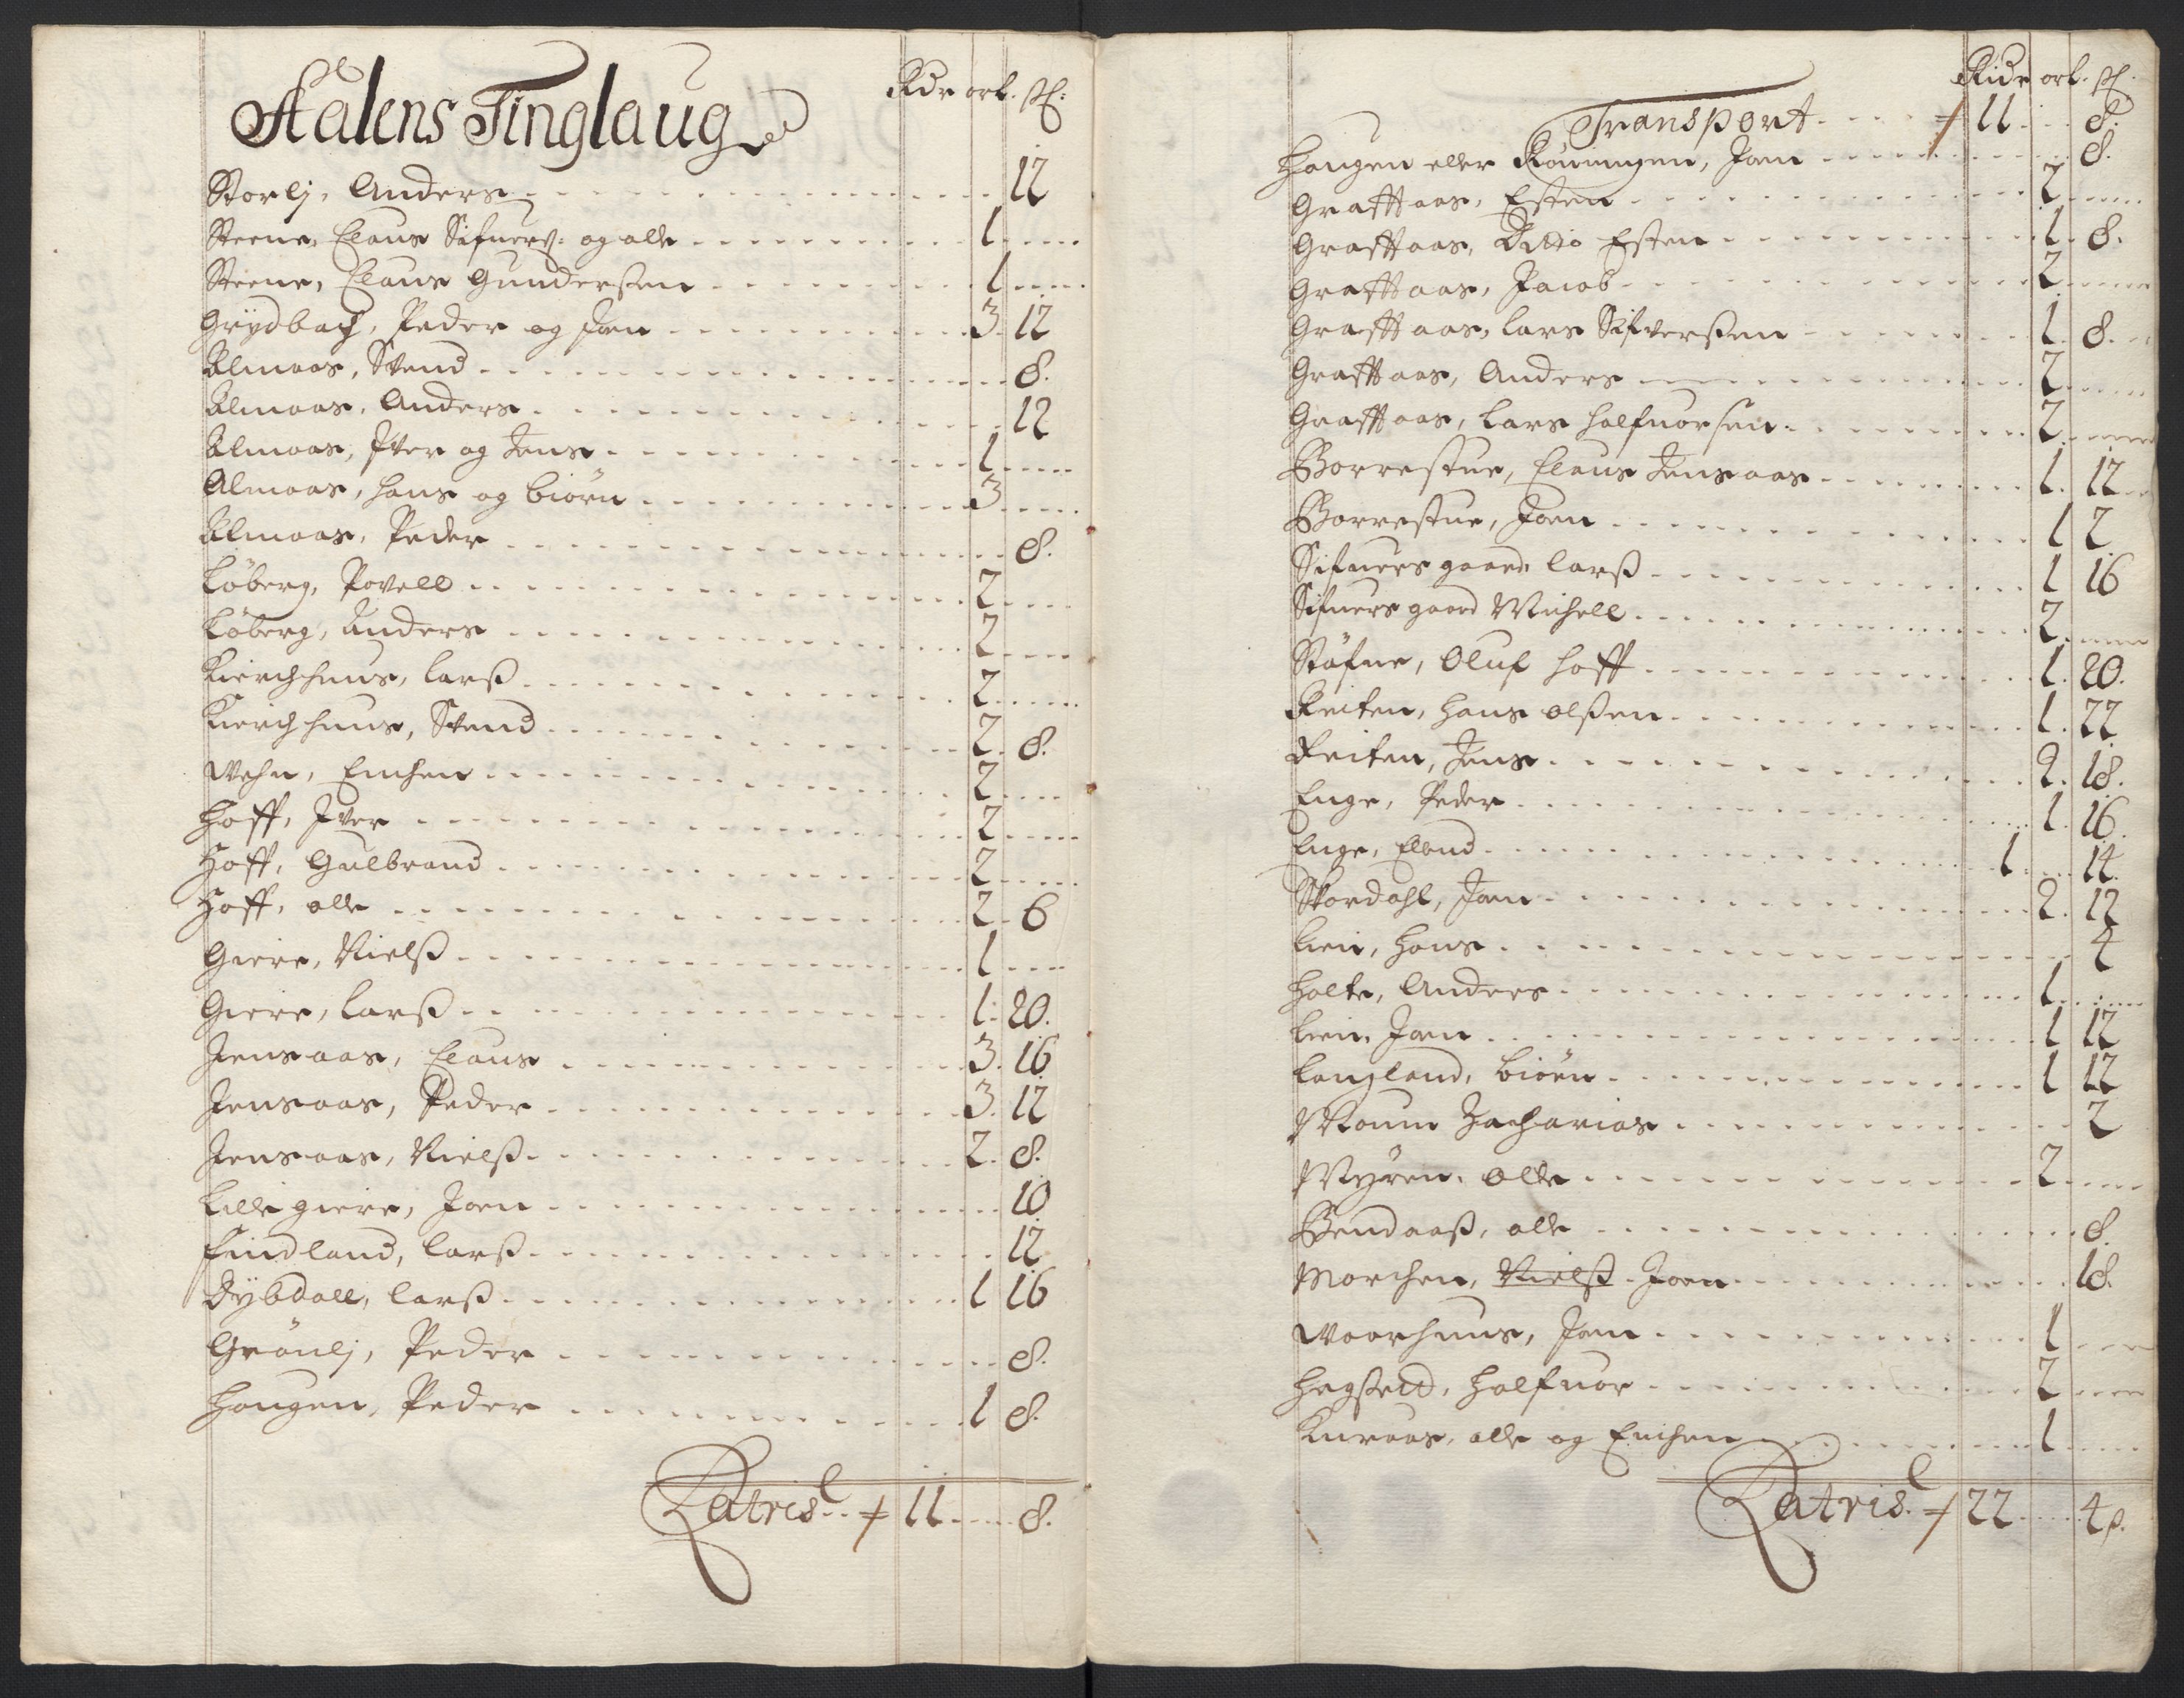 Aalens Tinglaug
Rdr ort. ß:
Storlj, Anders 12
Steene, Claus Sifuers: og olle 1
Steene, Claus Gunderßen 1
Grydbach, Peder og Joen 3. 12
Almaas, Svend 8.
Almaas, Anders 12
Almaas, Iver og Jens 1
Almaas, Hans og biörn 3
Almaas, Peder 8.
Löberg, Povell 2
Löberg, Anders 2
Kierchhuus, Larß 2
Kierchhuus, Svend 2. 8.
Wehn, Erichen 2
Hoff, Iver 2
Hoff, Gulbrand 2
Hoff, olle 2. 6
Giere, Nielß 1
Giere, Larß 1. 20.
Jensaas, Claus 3. 16
Jensaas, Peder 3. 12
Jensaas, Nielß 2. 8.
Lille giere, Joen 10
Findland, Larß 12
Dybdall, Larß 1 16
Grönlj, Peder 8.
Hougen, Peder 1 8.
Latris. 11 8.
Ridr ort. ß.
Transport 11 8.
Hougen eller Röningen, Joen 8.
Grafftaas, Esten 2
Grafftaas, Ditto Esten 1. 8.
Grafftaas, Jacob 2
Grafftaas, Lars Sifverßen 1. 8.
Grafftaas, Anders 2
Grafftaas, Lars Halfuorsen 2
Borrestue, Claus Jensaas 1. 12
Borrestue, Joen 1 2
Sifuers gaard Larß 1 16
Sifuers gaard Michell 2
Stöfne, Oluf Hoff 1. 20.
Reiten, Hans olßen 1. 22
Reiten, Jens 2. 18.
Enge, Peder 1. 16.
Enge, Elend 1 14.
Skordahl, Joen 2. 12
Lien, Hans 4
Holte, Anders 1
Lien, Joen 1 12
Langland, biörn 1 12
Moum Zacharias 2
Myren, Olle 2
Bendaaß, olle 8.
Morchen, Nielß Joen 18.
Woorhuus, Joen 1
Hegßett, Halfuor 2
Kuraas, olle og Erichen 1
Latris. 22 4 ß.